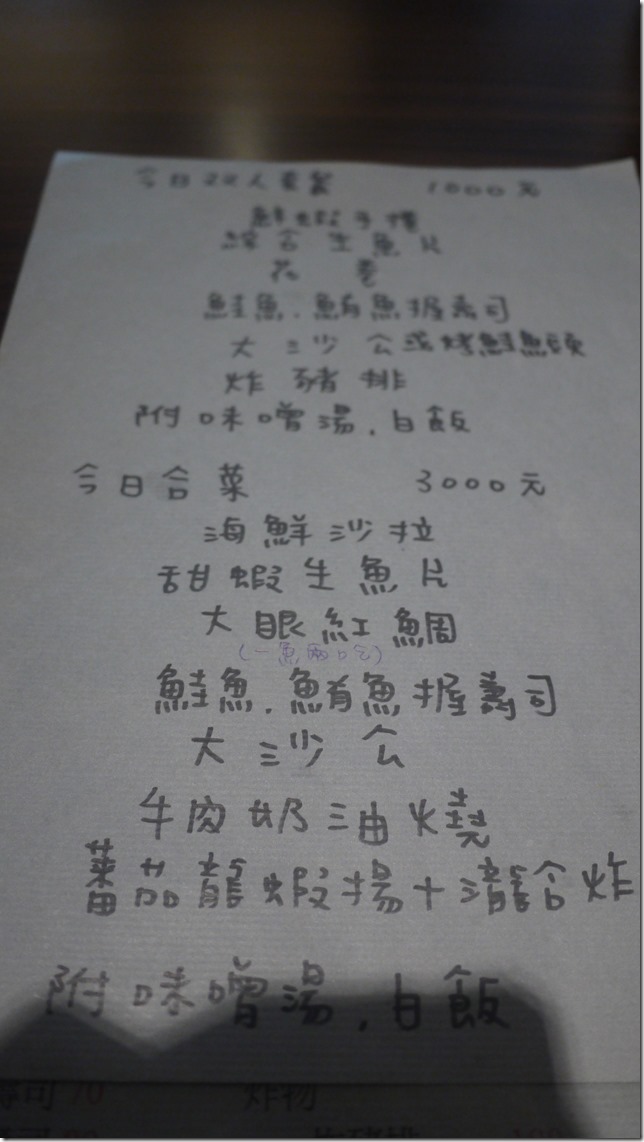 今日双人套餐 1000元
鮮蝦手捲
綜合生魚片
花壽
鮭魚.鮪魚握壽司
大沙公或烤鮭魚頭
炸豬排
附味噌湯.白飯
今日合菜 3000元
海鮮沙拉
甜蝦生魚片
大眼紅鯛
(一魚兩吃)
鮭魚.鮪魚握壽司
大沙公
牛肉奶油燒
蕃茄龍蝦揚+瀧含炸
附味噌湯.白飯
壽司 70 炸物